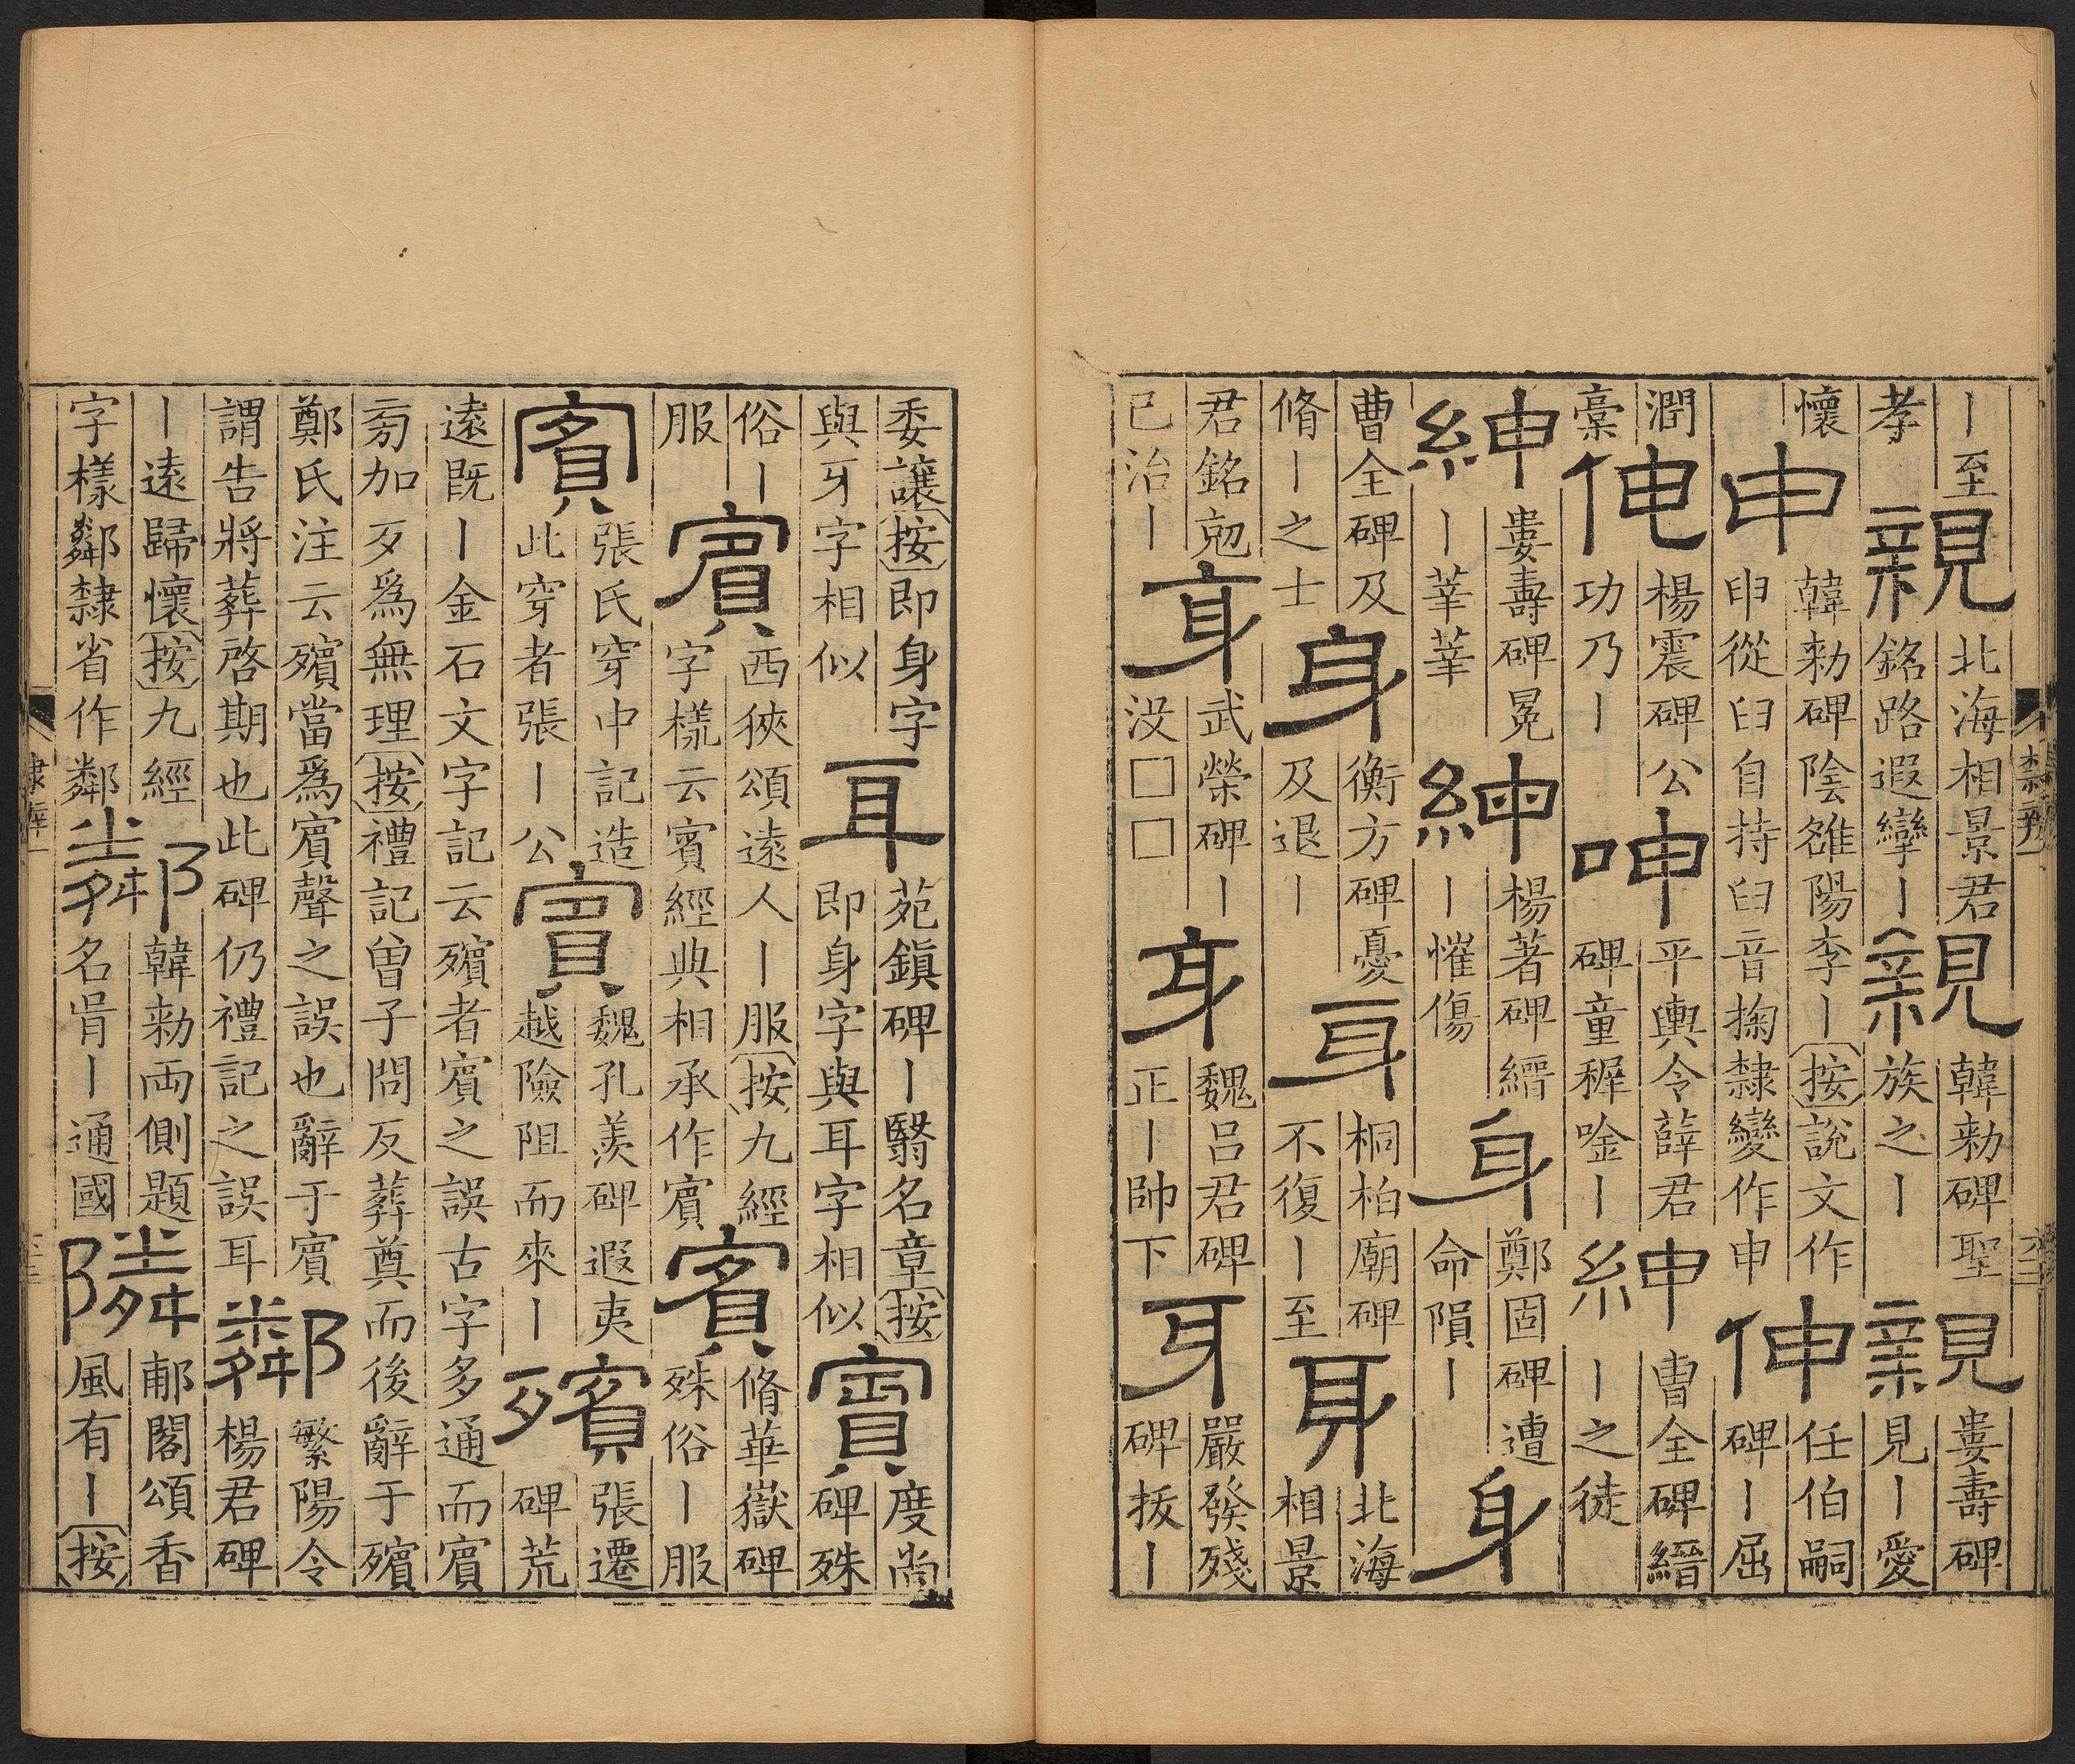 丨至
孝
親
北海相景君
銘路遐攣丨
親
韓勑碑聖
族之丨
親
婁壽碑
見丨愛
懷
申
韓勑碑陰雒陽李丨按說文作
申從𦥑自持𦥑音掬隸變作申
伸
任伯嗣
碑丨屈
潤
稾
伸
楊震碑公
功乃丨
呻
平輿令薛君
碑童穉唫丨
紳
曹全碑縉
丨之徒
紳
婁壽碑冕
丨莘莘
紳
楊著碑縉
丨慛傷
身
鄭固碑遭
命隕丨
身
曹全碑及
脩丨之士
身
衡方碑憂
及退丨
身
桐柏廟碑
不復丨至
身
北海
相景
君銘剋
已治丨
身
武榮碑丨
没□□
身
魏呂君碑
正丨帥下
身
嚴發殘
碑拔丨
委讓按即身字
與牙字相似
身
苑鎮碑丨翳名章按
即身字與耳字相似
賓
度尚
碑殊
俗丨
服
賓
西狹頌遠人丨服按九經
字樣云賓經典相承作賓
賓
脩華嶽碑
殊俗丨服
賓
張氏穿中記造
此穿者張丨公
賓
魏孔羨碑遐夷
越險阻而來丨
殯
張遷
碑荒
遠既丨金石文字記云殯者賓之誤古字多通而賓
㫄加歹爲無理按禮記曾子問反葬奠而後辭于殯
鄭氏注云殯當爲賓聲之誤也辭于賓
謂告將葬啓期也此碑仍禮記之誤耳
鄰
繁陽令
楊君碑
丨遠歸懷按九經
字樣鄰隸省作鄰
鄰
韓勑兩側題
名呰丨通國
隣
郙閣頌香
風有丨按